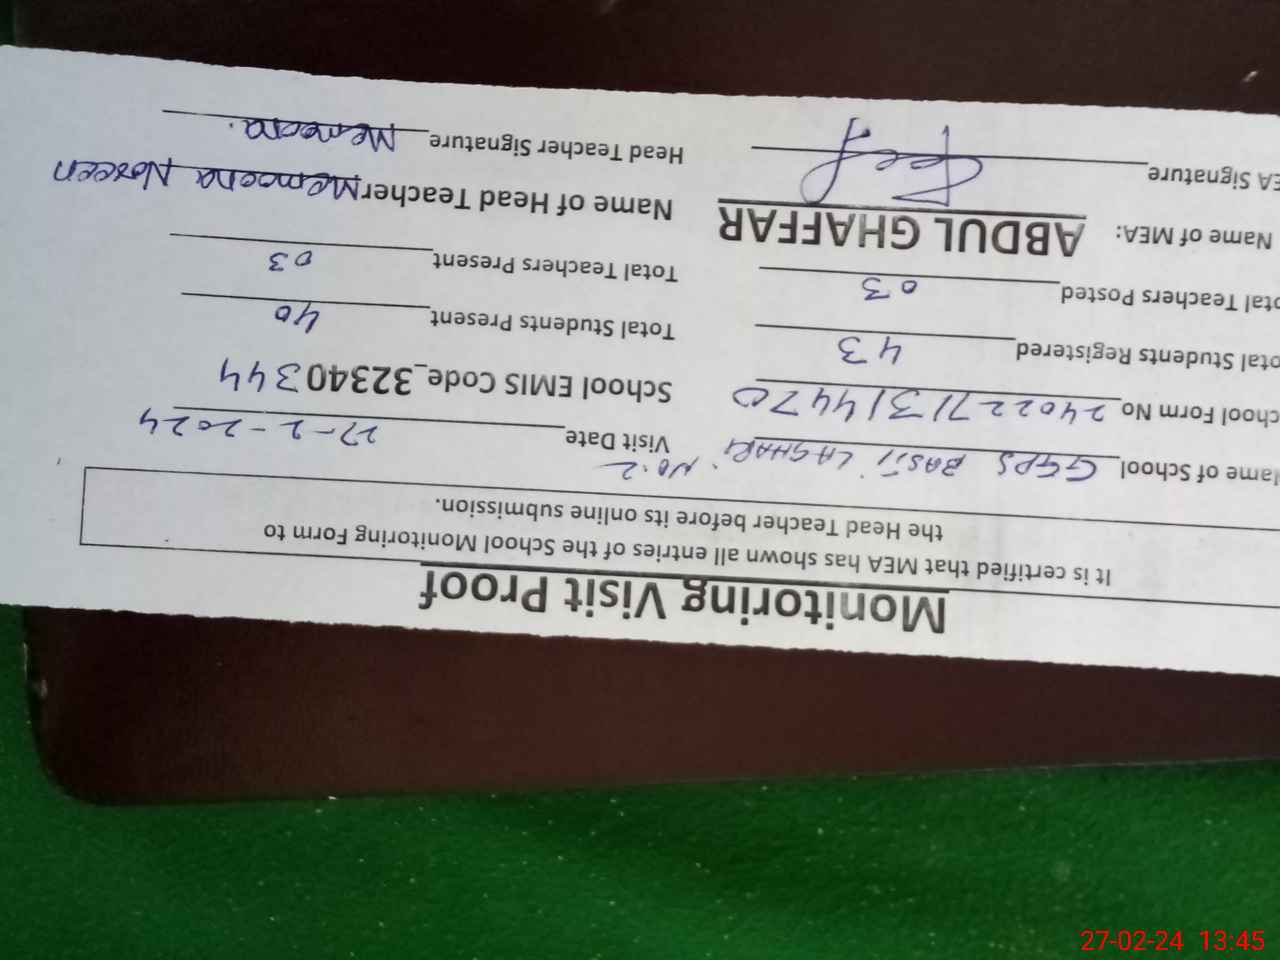 Monitoring Visit Proof
It is certified that MEA has shown all entries of the School Monitoring Form to
the Head Teacher before its online submission.
Name of School GGPS BASTI LAGHARI NO.2 Visit Date 27-2-2024
School Form No 2402271314470 School EMIS Code_32340344
Total Students Registered 43 Total Students Present 40
Total Teachers Posted 03 Total Teachers Present 03
Name of MEA: ABDUL GHAFFAR Name of Head Teacher Memoona Noreen
MEA Signature Head Teacher Signature Memoona.
27-02-24 13:45